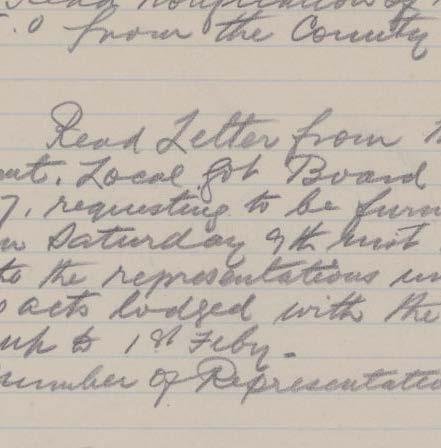 Read Notification of
from the County
Read Letter from
Local gov Board
7, requesting to be furn
Saturday 9th inst
to the representations un
acts lodged with the
up to 1st Feby.
number of Representatio